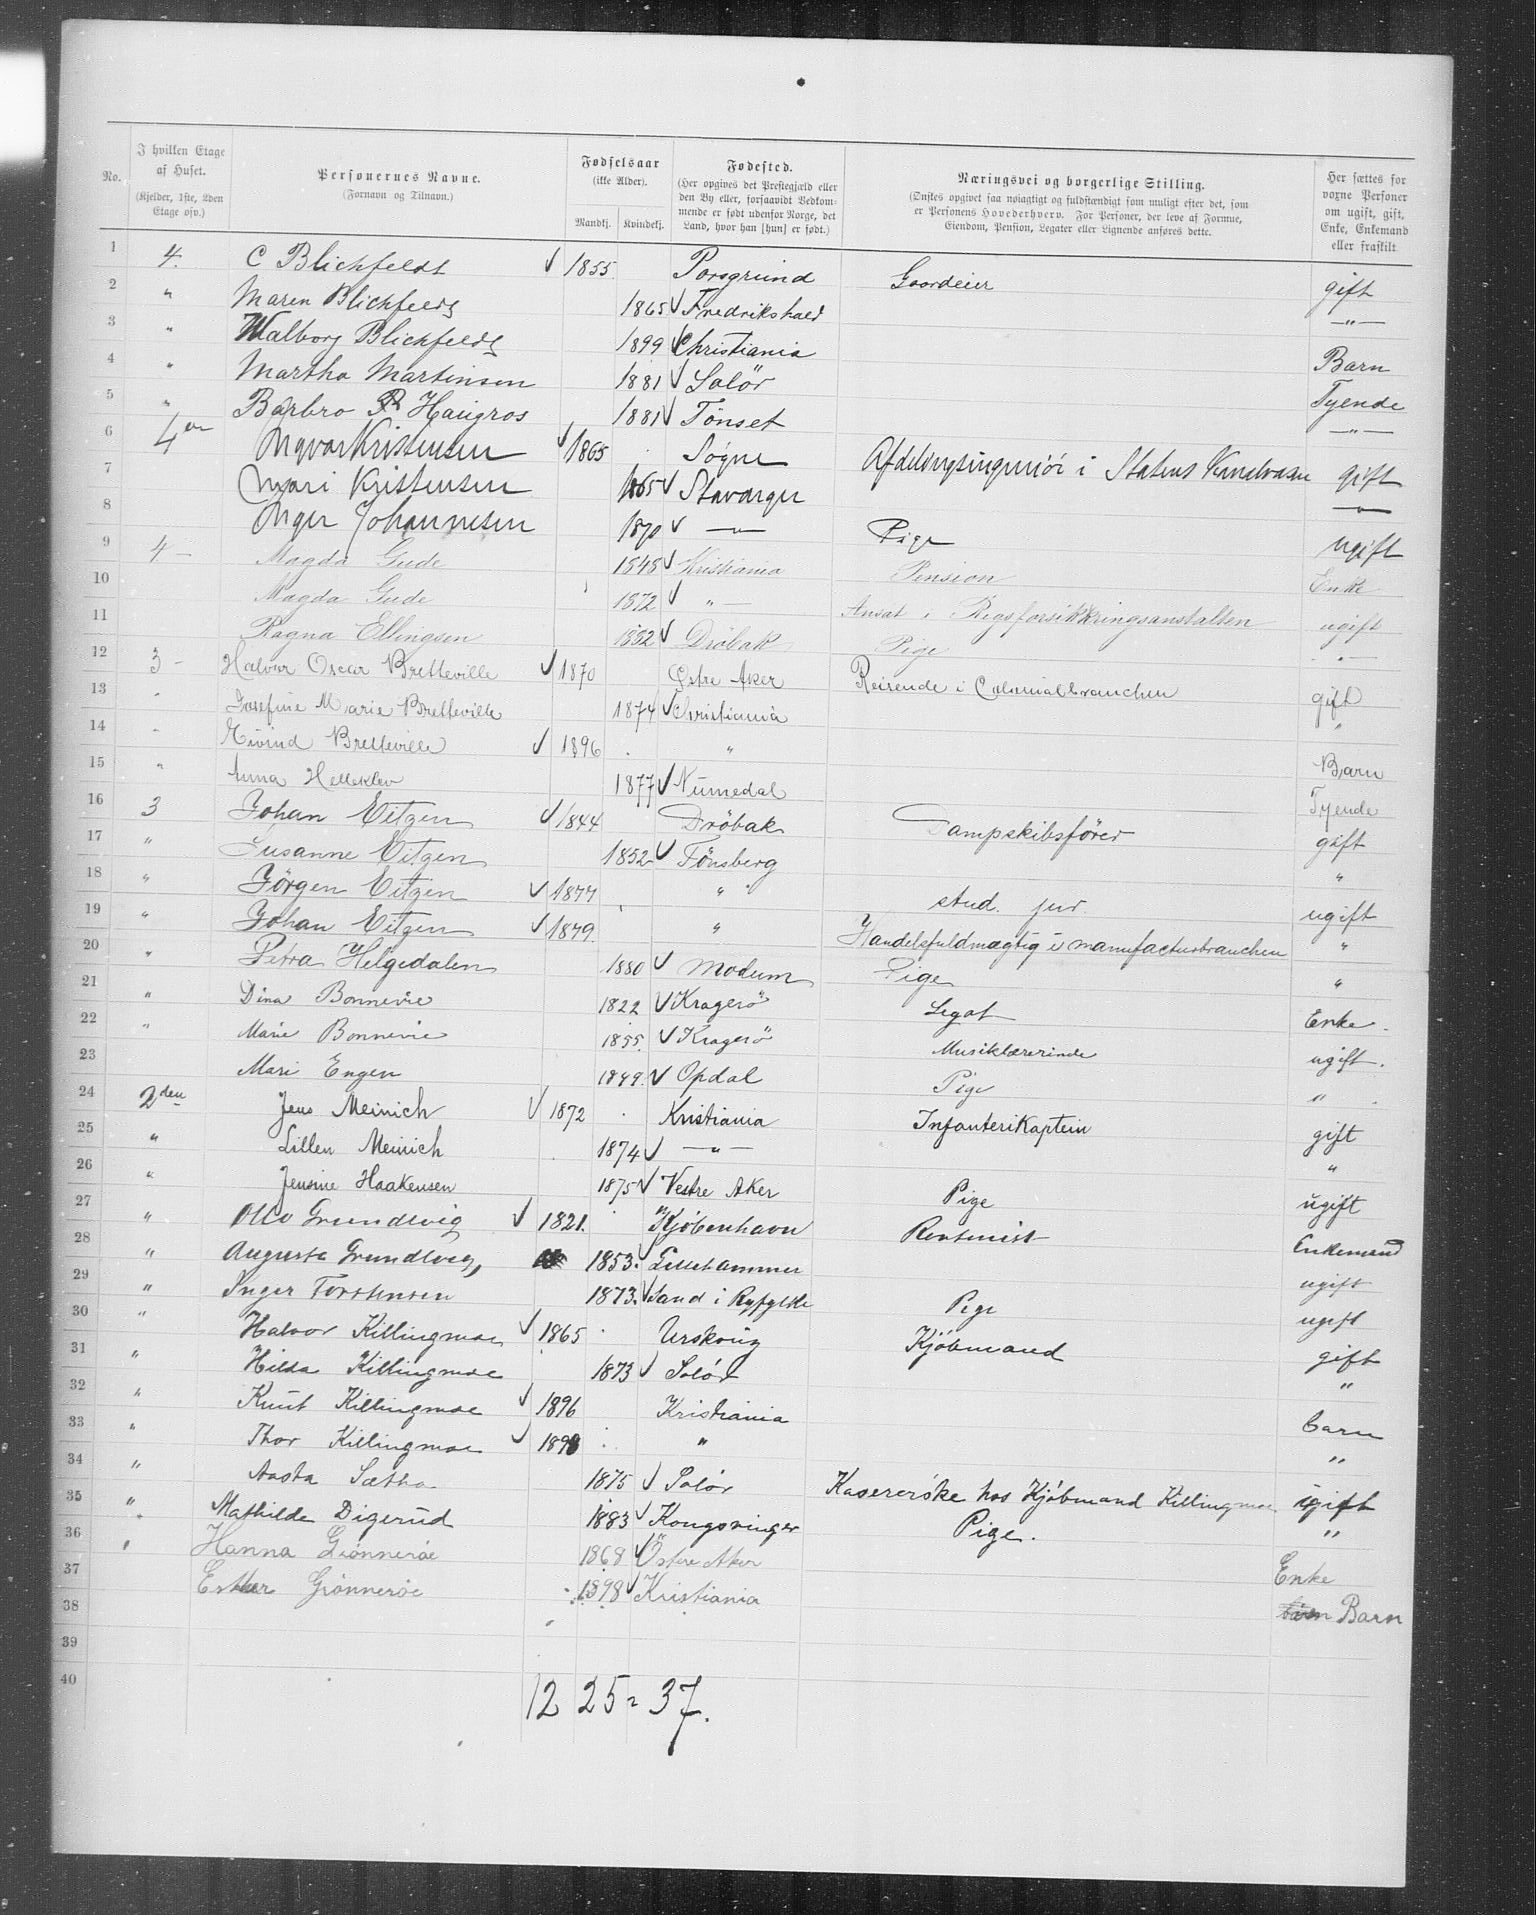 No.
I hvilken Etage af Huset. (Kjelder, 1ste, 2den Etage osv.)
Personernes Navne. (Fornavn og Tilnavn.)
Fødselsaar (ikke Alder). Mandkj. Kvindekj.
Fødested. (Her opgives det Prestegjæld eller den By eller, forsaavidt Vedkommende er født udenfor Norge, det Land, hvor han [hun] er født.)
Næringsvei og borgerlige Stilling. (Ønskes opgivet saa nøiagtigt og fuldstændigt som muligt efter det, som er Personens Hovederhverv. For Personer, der leve af Formue, Eiendom, Pension, Legater eller Lignende anføres dette.
Her sættes for voxne Personer om ugift, gift, Enke, Enkemand eller fraskilt
1 4. C Blichfeldt ✓ 1855 Porsgrund Gaardeier gift
2 " Maren Blichfeldt 1865 ✓ Fredrikshald —"—
3 " Walborg Blichfeldt 1899 ✓ Christiania Barn
4 " Martha Martinsen 1881 ✓ Solör Tyende
5 " Barbro R Haugros 1881 ✓ Tönset —"—
6 4de Ingvar Kristensen ✓ 1865 Søgne Afdelingsingeniör i Statens Kanalvæsen gift
7 Mari Kristensen 1865 ✓ Stavanger —"—
8 Inger Johannesen 1870 ✓ —"— Pige ugift
9 4 — Magda Gude 1848 ✓ Kristiania Pension Enke
10 Magda Gude 1872 ✓ "— Ansat i Rigsforsikkringsanstalten ugift
11 Ragna Ellingsen 1882 ✓ Dröbak Pige "—
12 3 — Halvor Oscar Bretteville ✓ 1870 Østre Aker Reisende i Colonialbranchen gift
13 " Josefine Marie Bretteville 1874 ✓ Christiania "
14 " Eivind Bretteville ✓ 1896 " Barn
15 " Anna Helleklev 1877 ✓ Numedal Tyende
16 3 Johan Eitzen ✓ 1844 Dröbak Dampskibsförer gift
17 " Susanne Eitzen 1852 ✓ Tönsberg "
18 " Jörgen Eitzen ✓ 1877 " stud. jur. ugift
19 " Johan Eitzen ✓ 1879 " Handelsfuldmægtig i manufacturbranchen "
20 " Petra Helgedalen 1880 ✓ Modum Pige "
21 " Dina Bonnevie 1822 ✓ Kragerö Legat Enke.
22 " Marie Bonnevie 1855. ✓ Kragerö Musiklærerinde ugift.
23 Mari Engen 1849. ✓ Opdal Pige "
24 2den Jens Meinich ✓ 1872 Kristiania Infanterikaptein gift
25 " Lillen Meinich 1874 ✓ —"— "
26 " Jensine Haakensen 1875 ✓ Vestre Aker Pige ugift
27 " Otto Grundtvig ✓ 1821. Kjöbenhavn Rentenist Enkemand
28 " Augusta Grundtvig, 1853. ✓ Lillehammer ugift
29 " Inger Torstensen 1873. ✓ Sand i Ryfylke Pige ugift
30 " Halvor Killingmoe ✓ 1865 Urskoug Kjöbmand gift
31 " Hilda Killingmoe 1873 ✓ Solör "
32 " Knut Killingmoe ✓ 1896 Kristiania barn
33 " Thor Killingmoe ✓ 1898 " "
34 " Aasta Sætha 1875 ✓ Solör Kasererske hos Kjöbmand Killingmoe. ugift
35 " Mathilde Digerud 1883 ✓ Kongsvinger Pige. "
36 " Hanna Grönneröe 1868 ✓ Östre Aker Enke
37 Esther Grönneröe 1898 ✓ Kristiania Barn
38
39
40
12 25 = 37.